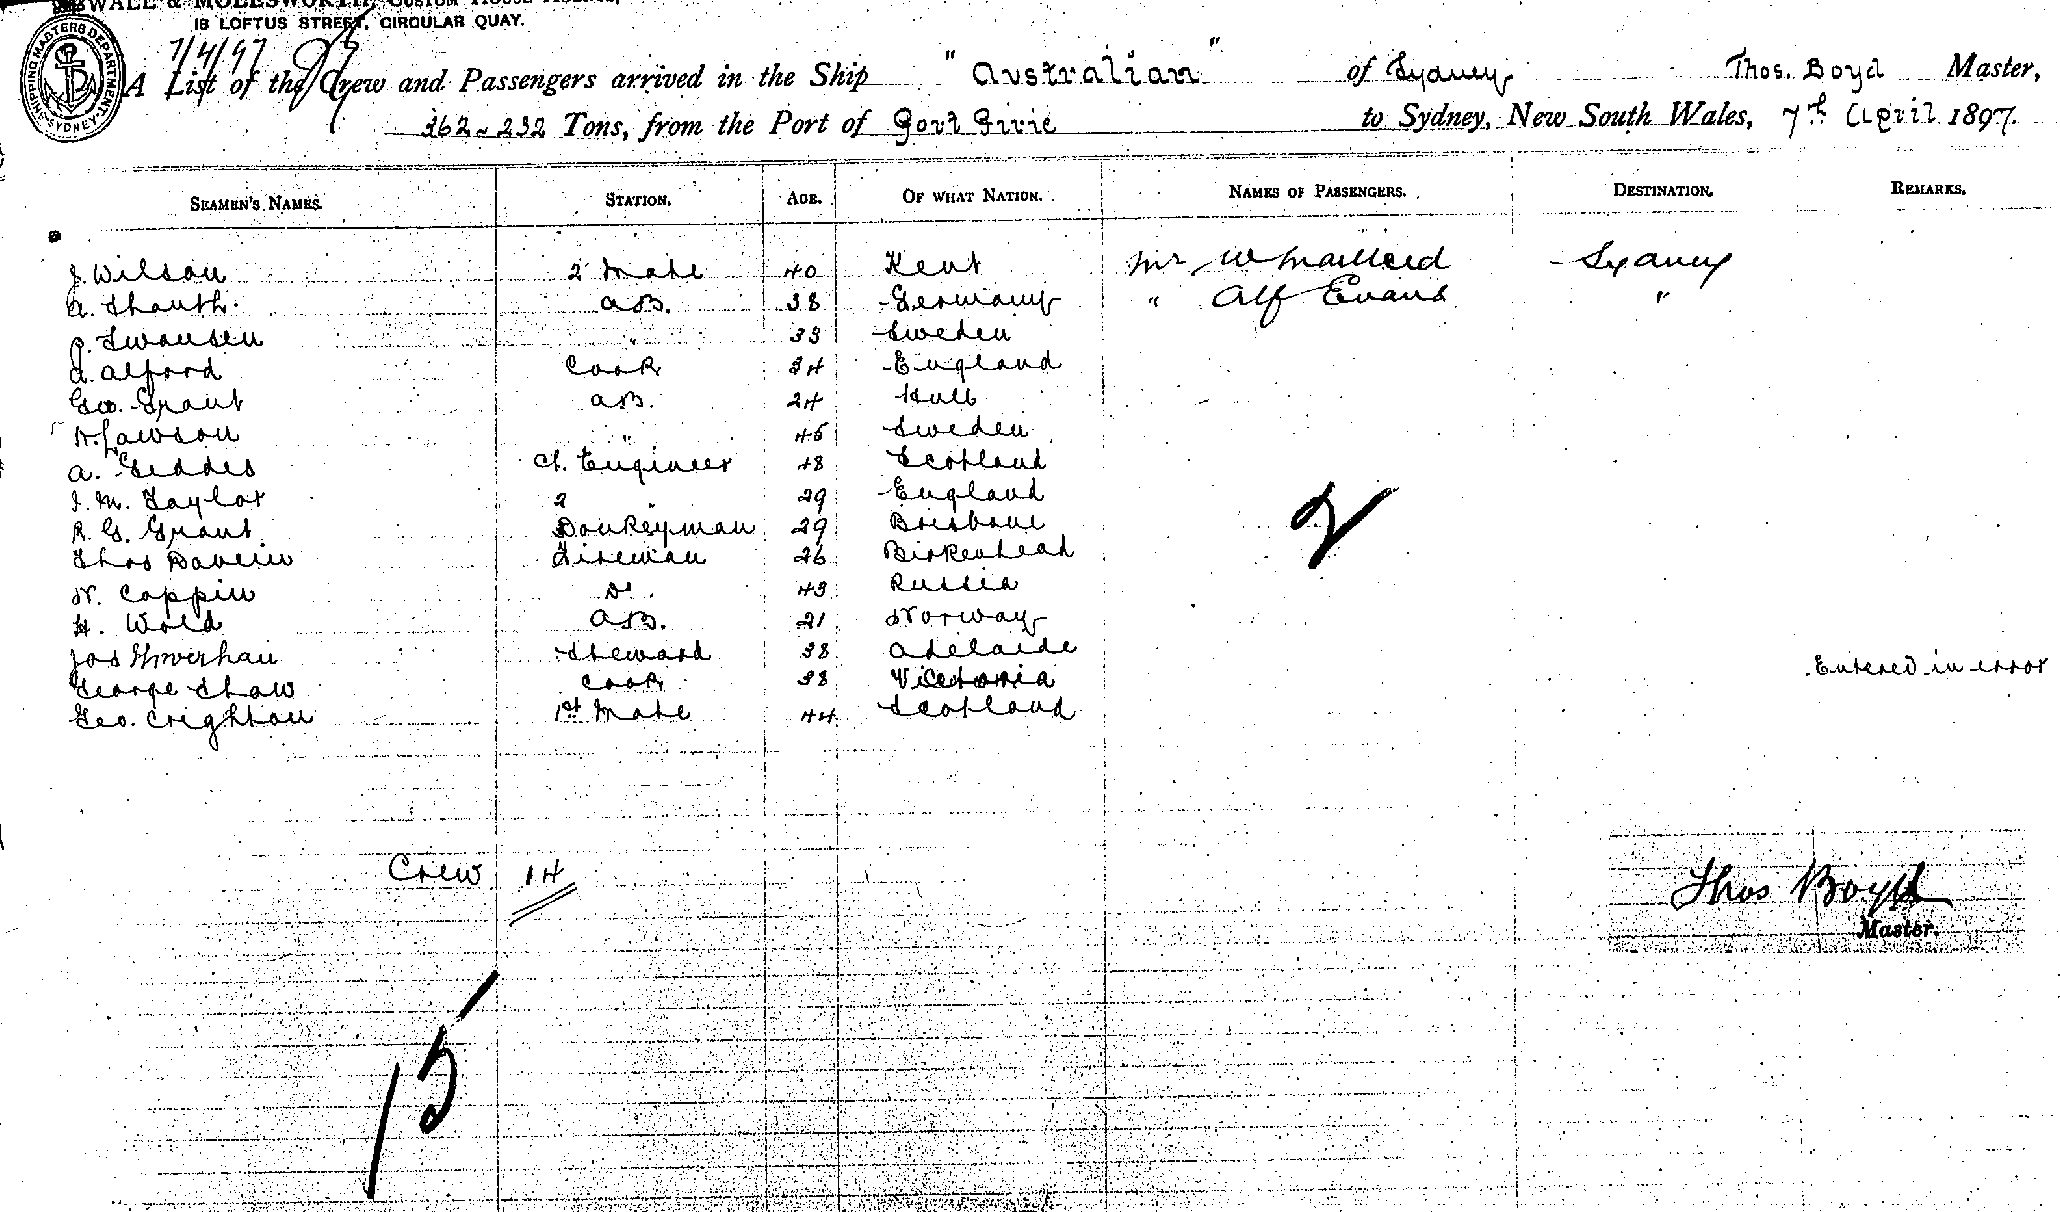 WALL & MOLESWORTH, CUSTOM HOUSE AGENTS,
18 LOFTUS STREET, CIRCULAR QUAY.
SHIPPING MASTERS DEPARTMENT SYDNEY
7/4/97
A List of the Crew and Passengers arrived in the Ship "Australian" of Sydney Thos. Boyd Master,
362 - 232 Tons, from the Port of Port Pirie to Sydney, New South Wales, 7th April 1897.
SEAMEN'S NAMES. STATION. AGE. OF WHAT NATION. NAMES OF PASSENGERS. DESTINATION. REMARKS.
J. Wilson 2 Mate 40 Kent Mr W Sydney
A. AB. 38 Germany " Alf Evans "
P. Swansen " 33 Sweden
A. Alford Cook 34 England
Geo. Grant AB. 24 Hull
Lawson " 45 Sweden
A. Geddes Ch. Engineer 48 Scotland
J. M. Taylor 2 " 29 England
R. G. Grant Donkeyman 29 Brisbane
Thos Fireman 26 Birkenhead
N. Coppin Do. 43 Russia
H. Wold AB. 21 Norway
Jos Steward 38 Adelaide
George Shaw Cook 38 Victoria Entered in error
Geo. Crighton 1st Mate 44 Scotland
2
Crew 14
Thos Boyd
Master.
15